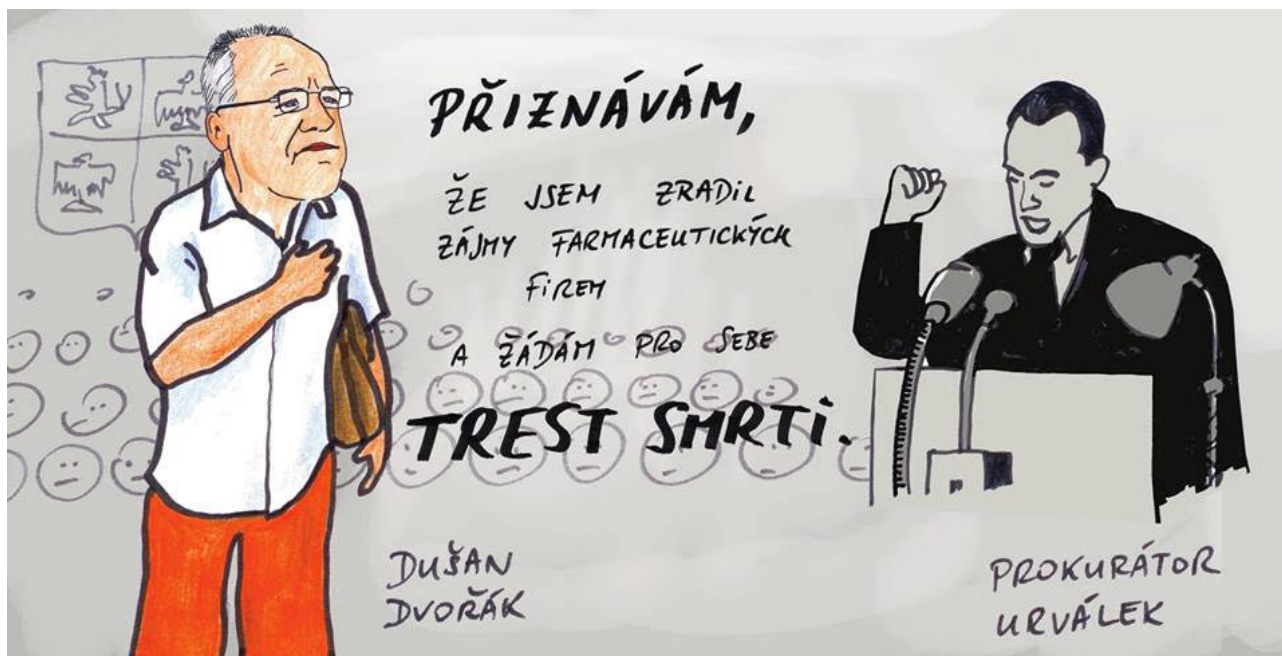 PŘIZNÁVÁM,
ŽE JSEM ZRADIL
ZÁJMY FARMACEUTICKÝCH
FIREM
A ŽÁDÁM PRO SEBE
TREST SMRTI.
DUŠAN
DVOŘÁK
PROKURÁTOR
URVÁLEK